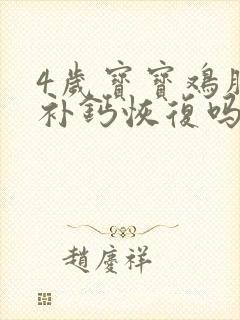 4歲寶寶鸡胸
补鈣恢復吗
趙慶祥